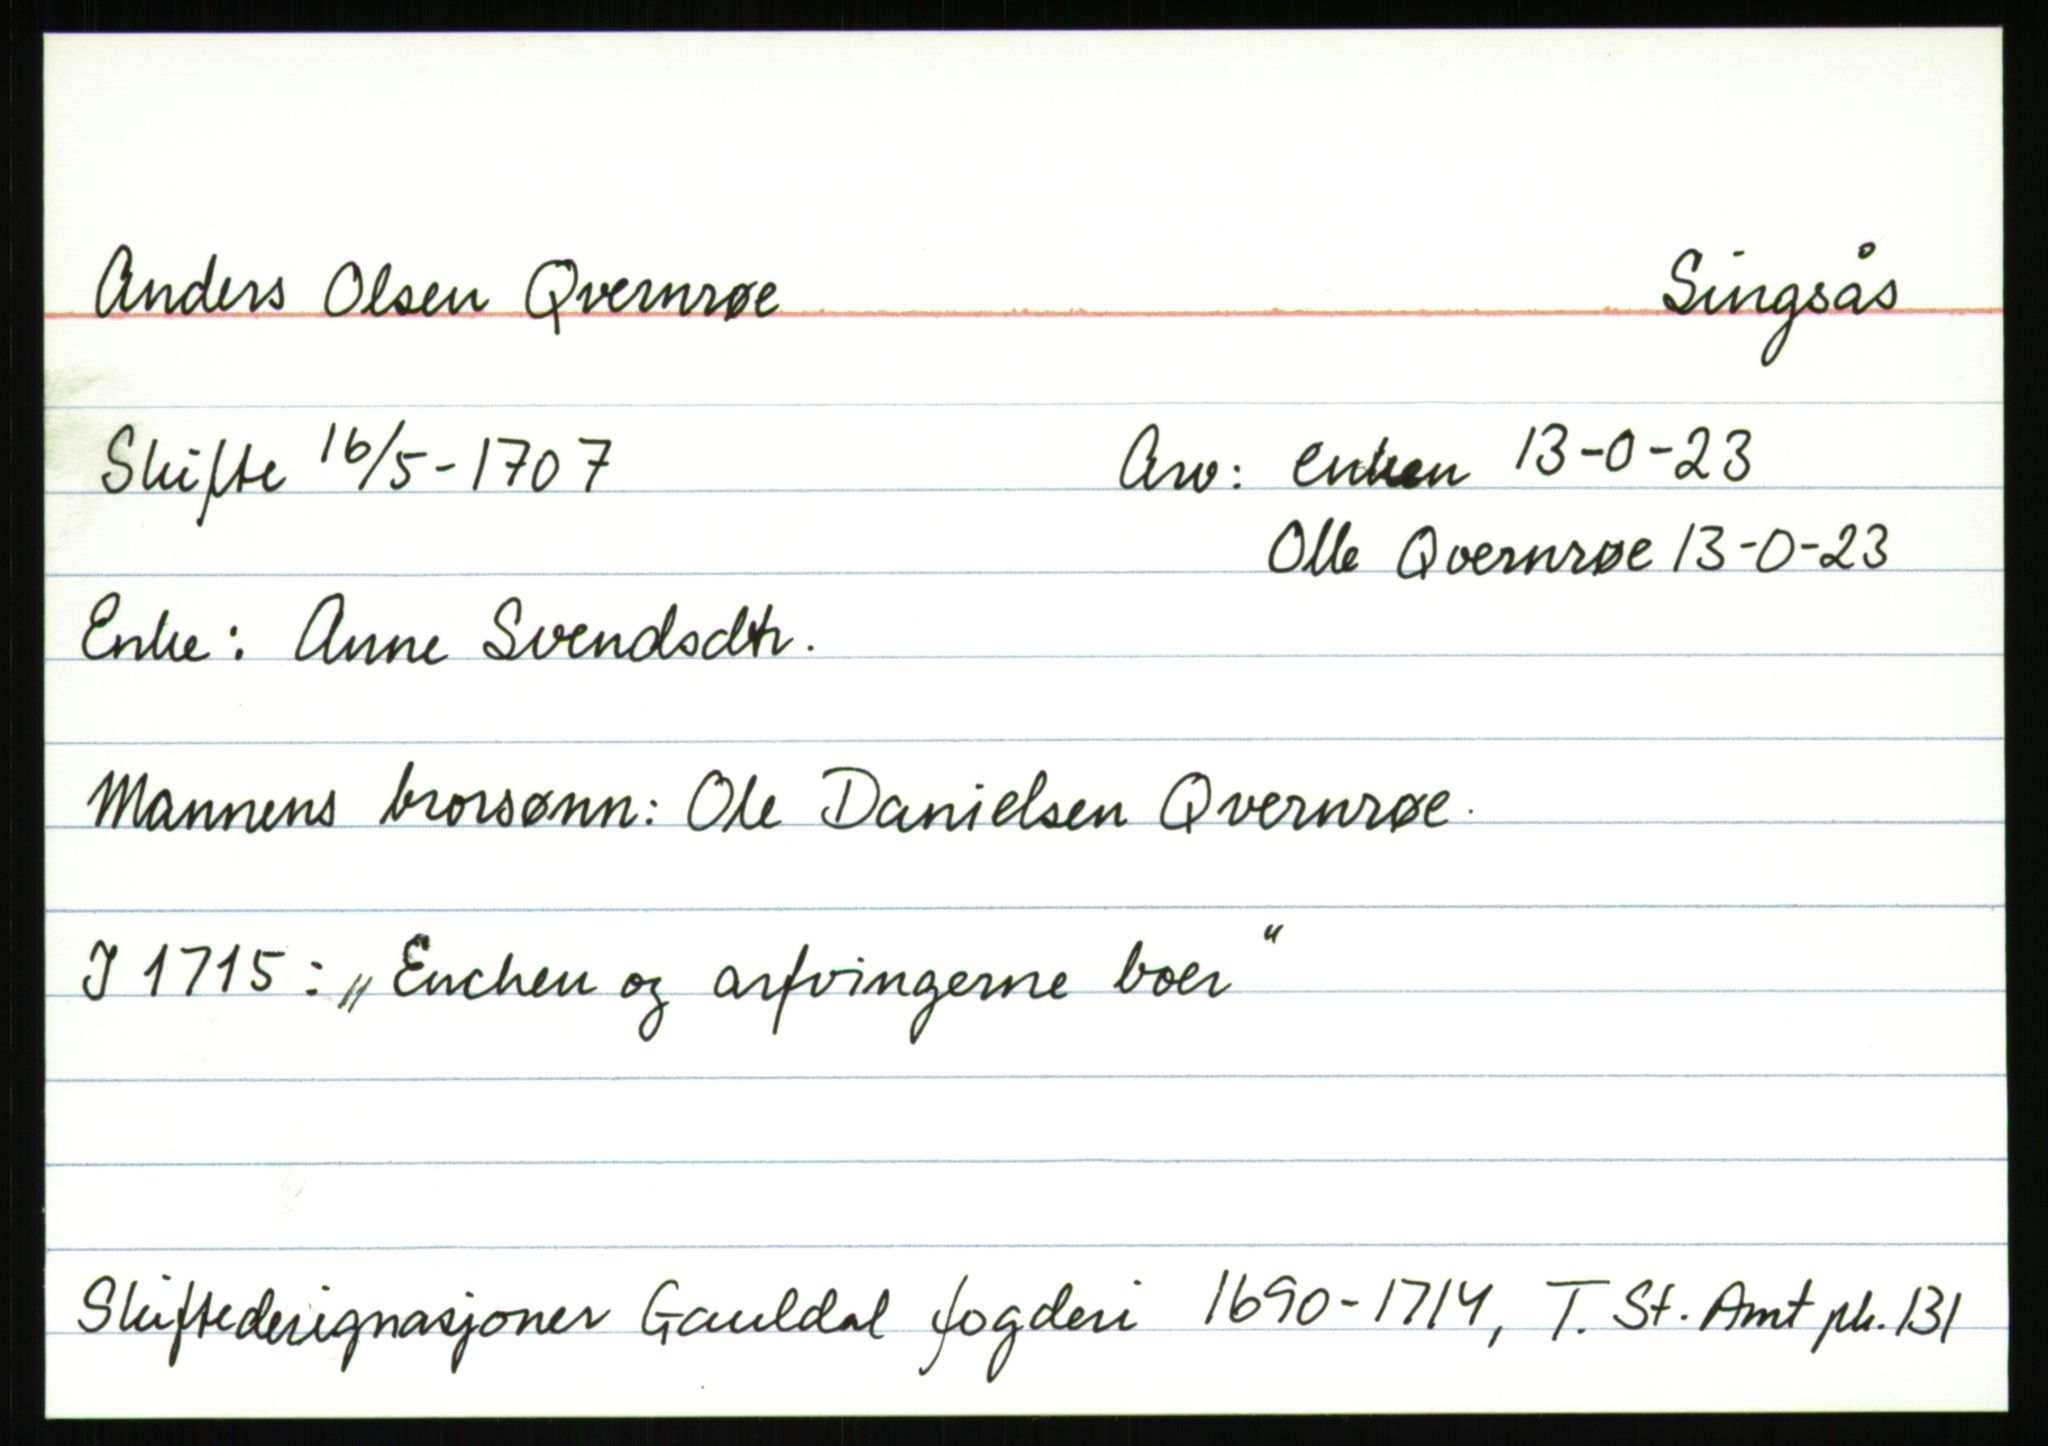 Anders Olsen Qvernrøe Singsås
Skifte 16/5-1707 Arv: enken 13-0-23
Olle Qvernrøe 13-0-23
Enke: Anne Svendsdtr.
Mannens brorsønn: Ole Danielsen Qvernrøe.
I 1715: „Enchen og arfvingerne boer“
Skiftedesignasjoner Gauldal fogderi 1690-1714, T. St. Amt pk. 131